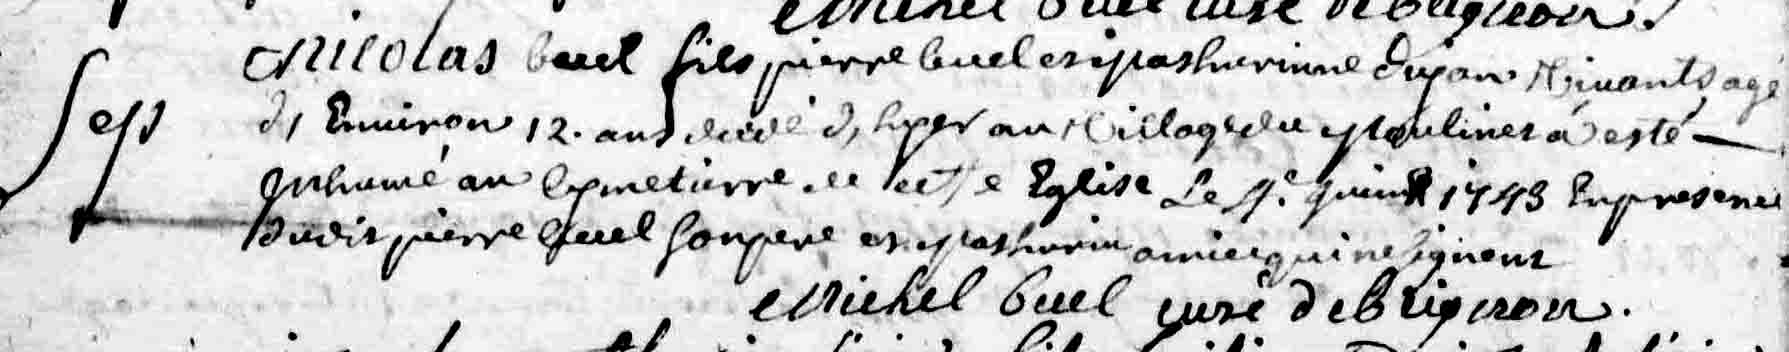 Michel buel curé de brignon.
Nicolas buel fils pierre buel et mathurinne dujou vivants agé
Sep
d'Environ 12. ans decedé d'hyer au village du moulinet a esté
Inhumé au Cymetierre de cette Eglise Le 4e. 1743 En presence
dudit pierre buel Son pere et mathurin amice qui ne signent
Michel buel curé de brignon.